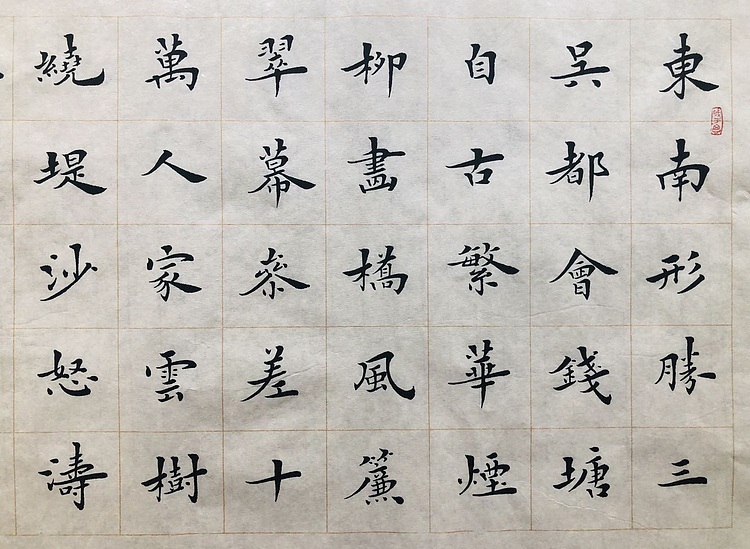 東南形勝三
吳都會錢塘
自古繁華煙
柳畫橋風簾
翠幕参差十
萬人家雲樹
繞堤沙怒濤